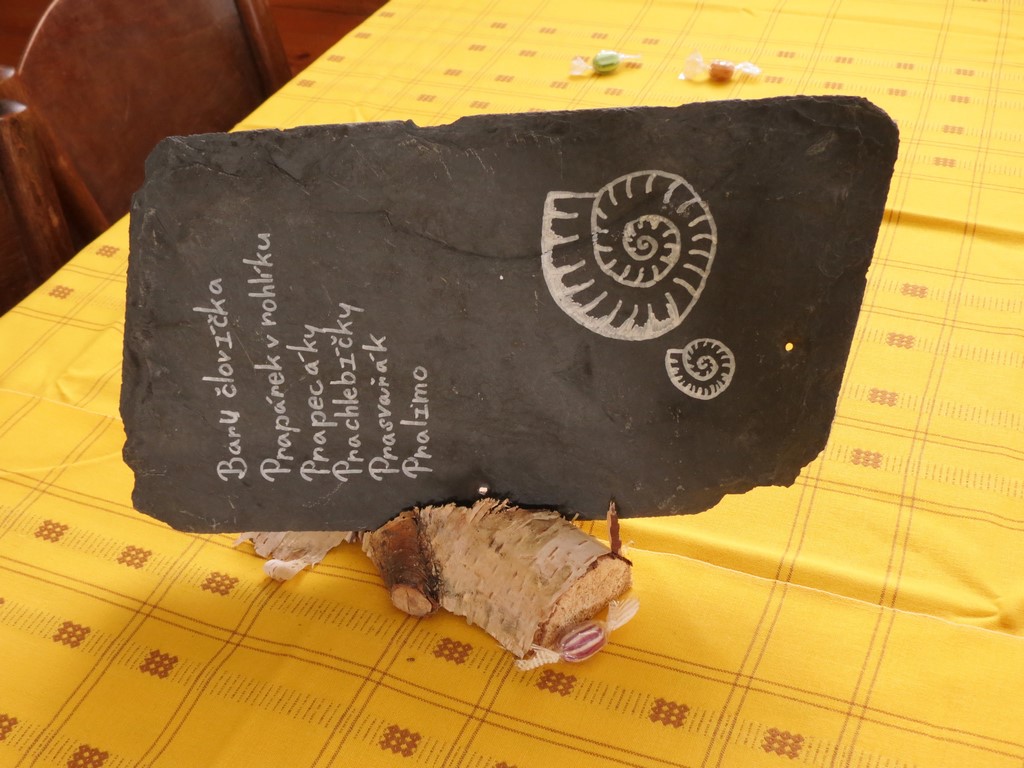 Barų človíčka
Prapánek v nohlíku
Prapecáky
Prachlebíčky
Prasvařák
Pralimo